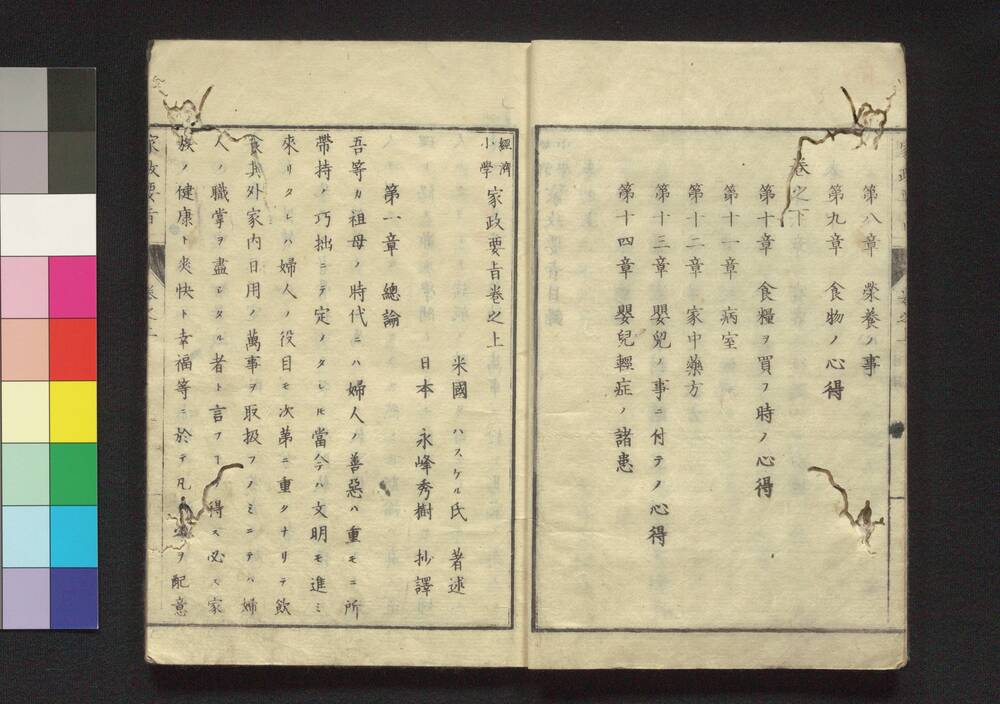 第八章　榮養ノ事
第九章　食物ノ心得
卷之下
第十章　食糧ヲ買フ時ノ心得
第十一章　病室
第十二章　家中藥方
第十三章　嬰兒ノ事ニ付テノ心得
第十四章　嬰兒輕症ノ諸患
經濟小學　家政要旨卷之上
米國　ハスケル氏　著述
日本　永峰秀樹　抄譯
第一章　總論
吾等カ祖母ノ時代ニハ婦人ノ善惡ハ重モニ所
帶持ノ巧拙ニテ定メタレ𪜈當今ハ文明モ進ミ
來リタレハ婦人ノ役目モ次第ニ重クナリテ飮
食其外家内日用ノ萬事ヲ取扱フノミニテハ婦
人ノ職掌ヲ盡シタル者ト言フヿ得ス必ス家
族ノ健康ト爽快ト幸福等ニ於テ凡ヲ配意
家政要旨　卷之上